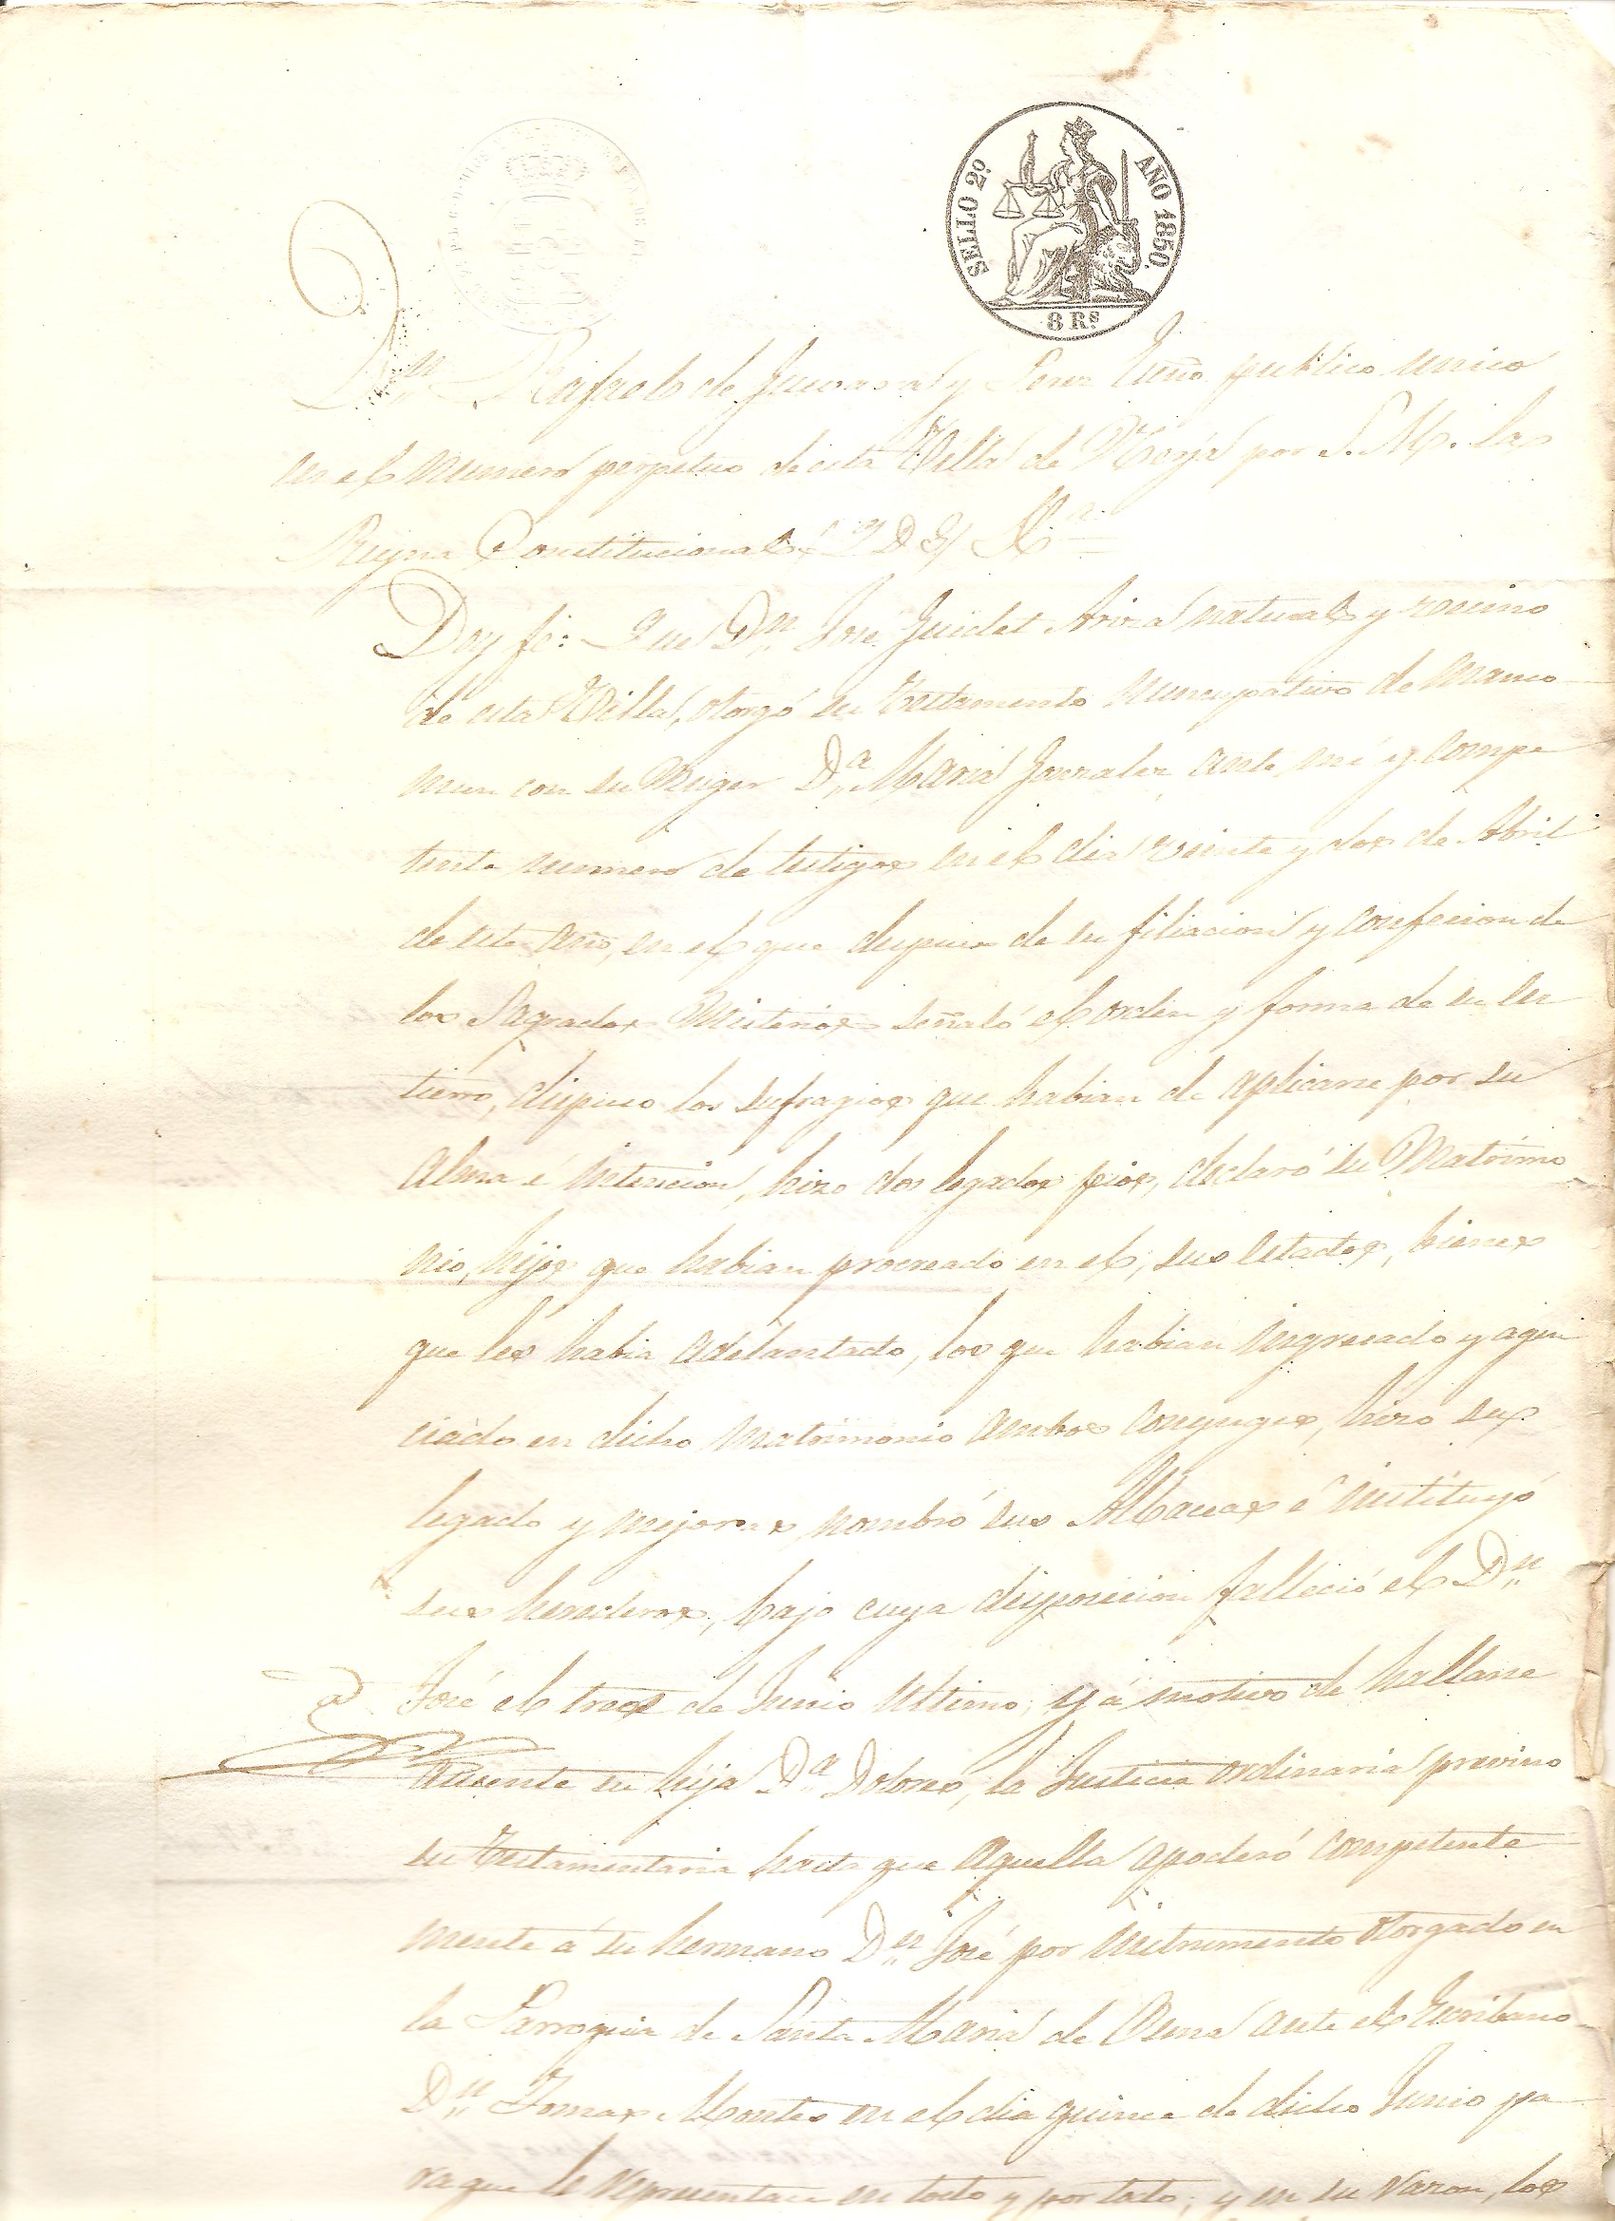 SELLO 2º AÑO 1850.
8 Rs
Dn Rafael de Guevara y Perez Escno publico unico
en el numero perpetuo de esta Villa de Borja por S. M. la
Reyna Constitucional
Doy fe: Que Dn José Guidet Ariza natural y vecino
de esta Villa, otorgó su testamento nuncupativo de manco
mun con su Muger Da Maria Gonzalez ante mi y compe
tente numero de testigos en el dia veinte y dos de Abril
de este año, en el que despues de su filiacion y confesion de
los Sagrados Misterios señaló el orden y forma de su En
tierro, dispuso los sufragios que habian de aplicarse por su
Alma é intencion, hizo dos legados pios, declaró su Matrimo
nio, hijos que habian procreado en el, sus estados, bienes
que les habia adelantado, los que habian ingresado y agen
ciado en dicho matrimonio ambos conyuges, hizo sus
legado y mejoras nombró sus Albaceas é instituyó
sus herederos, bajo cuya disposicion falleció el Dn
José el trece de Junio ultimo; y á motivo de hallarse
Ausente su hija Da Dolores, la Justicia ordinaria previno
su testamentaria hasta que aquella apoderó competente
mente á su hermano Dn José por instrumento otorgado en
la Parroquia de Santa Maria de ante el Escribano
Dn Tomas Montes en el dia quince de dicho Junio pa
ra que le representase en todo y por todo; y en su razon, los